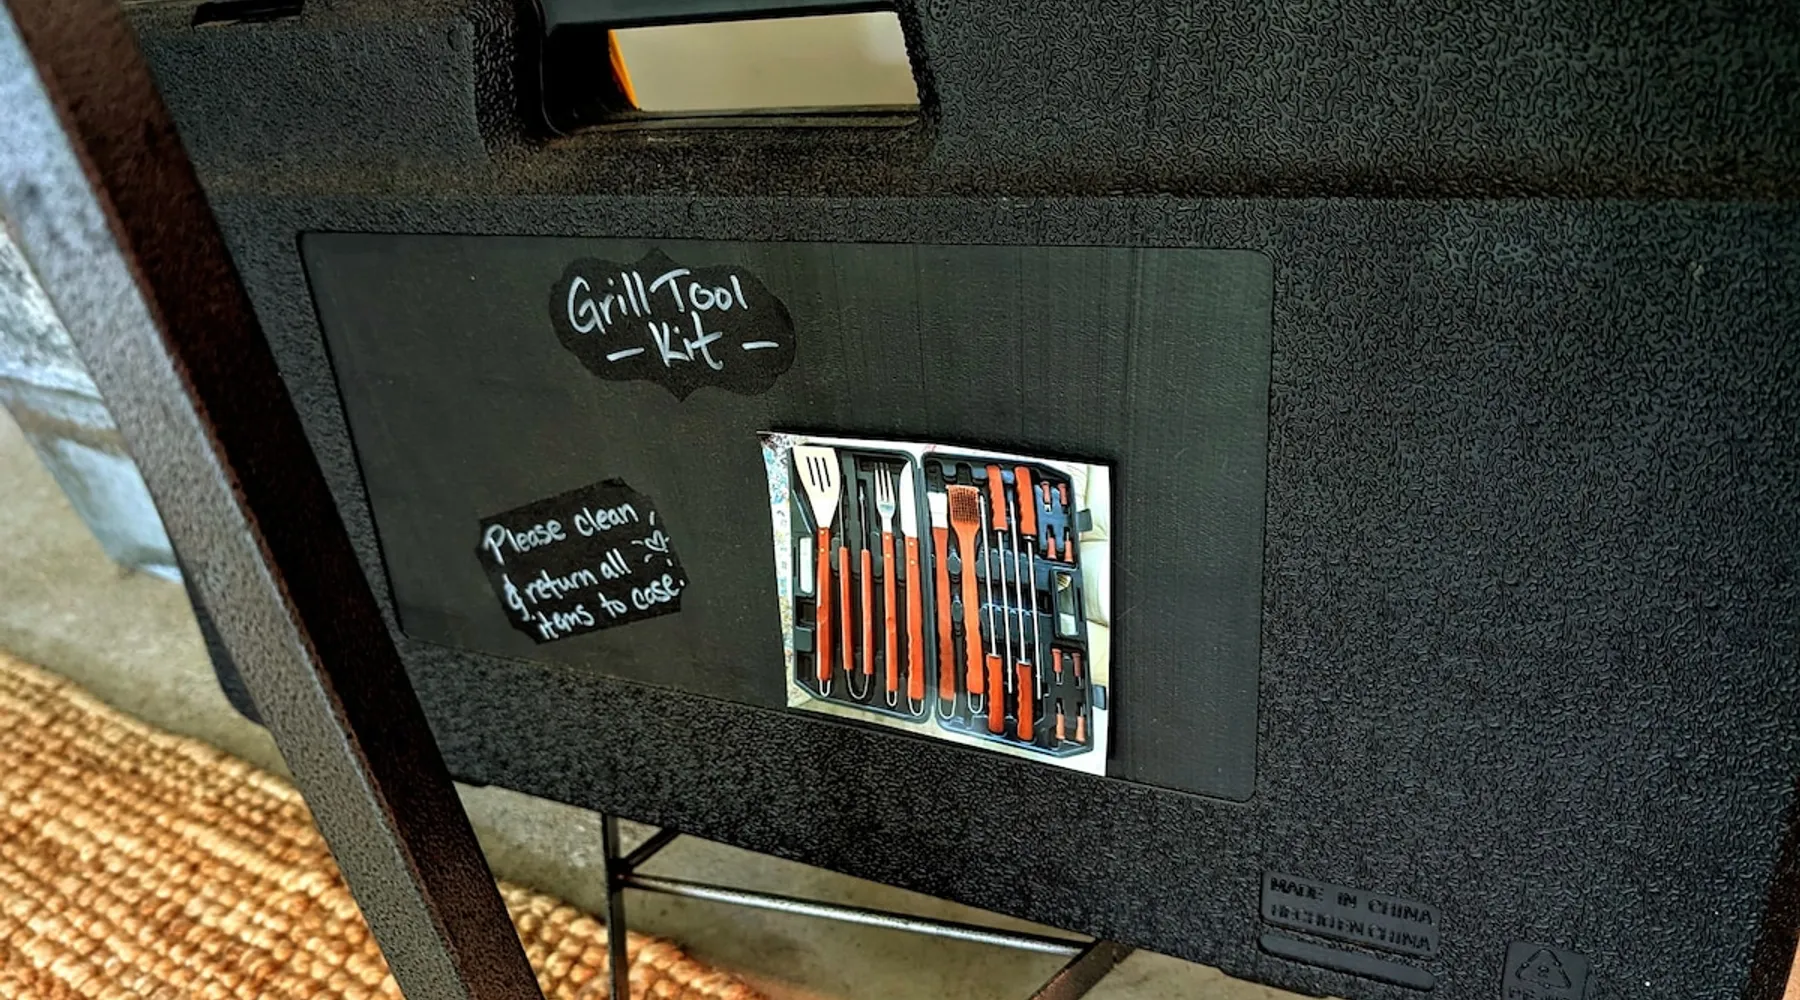 Grill Tool
- Kit -
Please clean
& return all
items to case.
MADE IN CHINA
HECHO EN CHINA